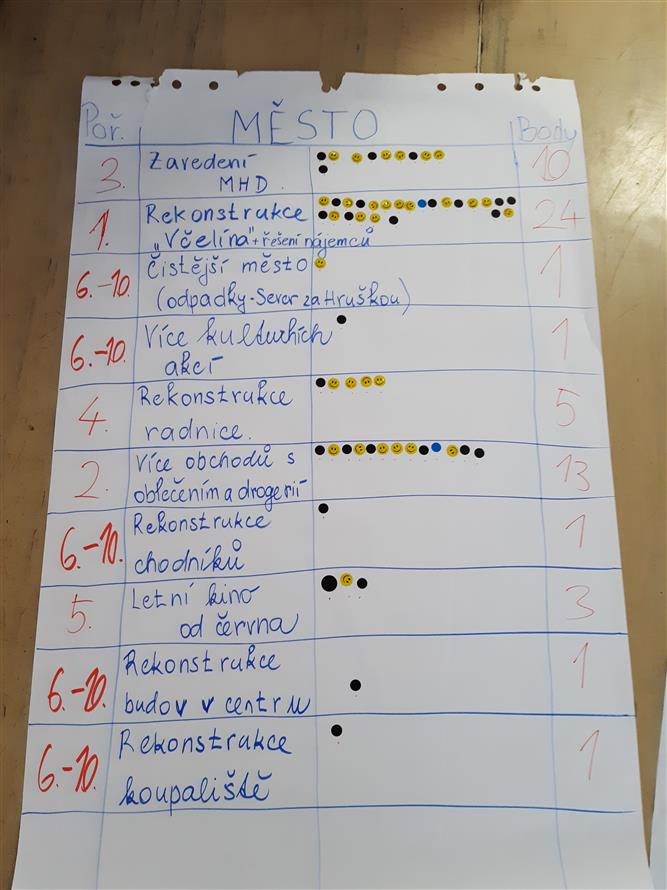 Poř. MĚSTO Body
3. Zavedení 10
MHD.
1. Rekonstrukce 24
„Včelína" + řešení nájemců
6.-10. Čistější město 1
(odpadky-Sever za Hruškou)
6.-10. Více kulturních 1
akcí
4. Rekonstrukce 5
radnice.
2. Více obchodů s 13
oblečením a drogerií
6.-10. Rekonstrukce 1
chodníků
5. Letní kino 3
od června
6.-10. Rekonstrukce 1
budov v centru
6.-10. Rekonstrukce 1
koupaliště